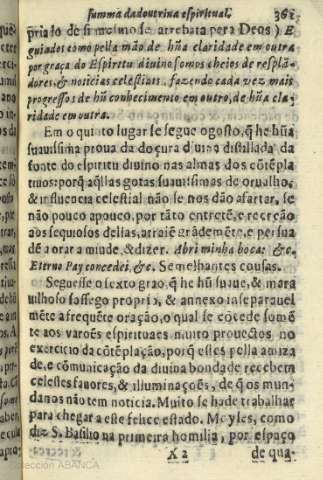 summa da doutrina espiritual. 362
priado de si mesmo se arrebata pera Deos) E
guiados como pella mão de hũa claridade em outra
por graça do Espiritu diuino somos cheios de resplã-
dores, & noticias celestiais. fazendo cada vez mais
progressos de hũ conhecimento em outro, de hũa cla-
ridade em outra.
Em o quinto lugar se segue ogosto, q̃ he hũa
suauissima proua da doçura diuina distillada da
fonte do espiritu diuino nas almas dos cõtẽpla
tiuos: porq̃ aq̃llas gotas suauissimas de orualho,
& influencia celestial não se nos dão afartar, se
não pouco apouco, por tãto entretẽ, e recreão
aos sequiosos dellas, atraiẽ grãdemẽte, e persua
dẽ a orar a miude, & dizer. Abri minha boca: &c.
Eterno Pay concedei, &c. Semelhantes cousas.
Seguesse o sexto grao, q̃ he hũ suaue, & mara
uilhoso sossego proprio, & annexo inseparauel
mẽte a frequẽte oração, o qual se cõcede somẽ
te aos varões espirituaes muito prouectos no
exercicio da cõtẽplação, porq̃ estes pella amiza
de, e cõmunicação da diuina bondade recebem
celestes fauores, & illuminações, de q̃ os mun-
danos não tem noticia. Muito se ha de trabalhar
para chegar a este felice estado. Moyses, como
diz S. Basilio na primeira homilia, por espaço
X 2 de qua-
Colección ABANCA